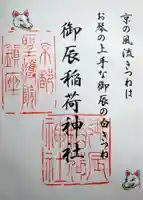 京の風流きつねは
お琴の上手な御辰の白きつね
御辰稲荷神社
京都
聖護院
鎮座